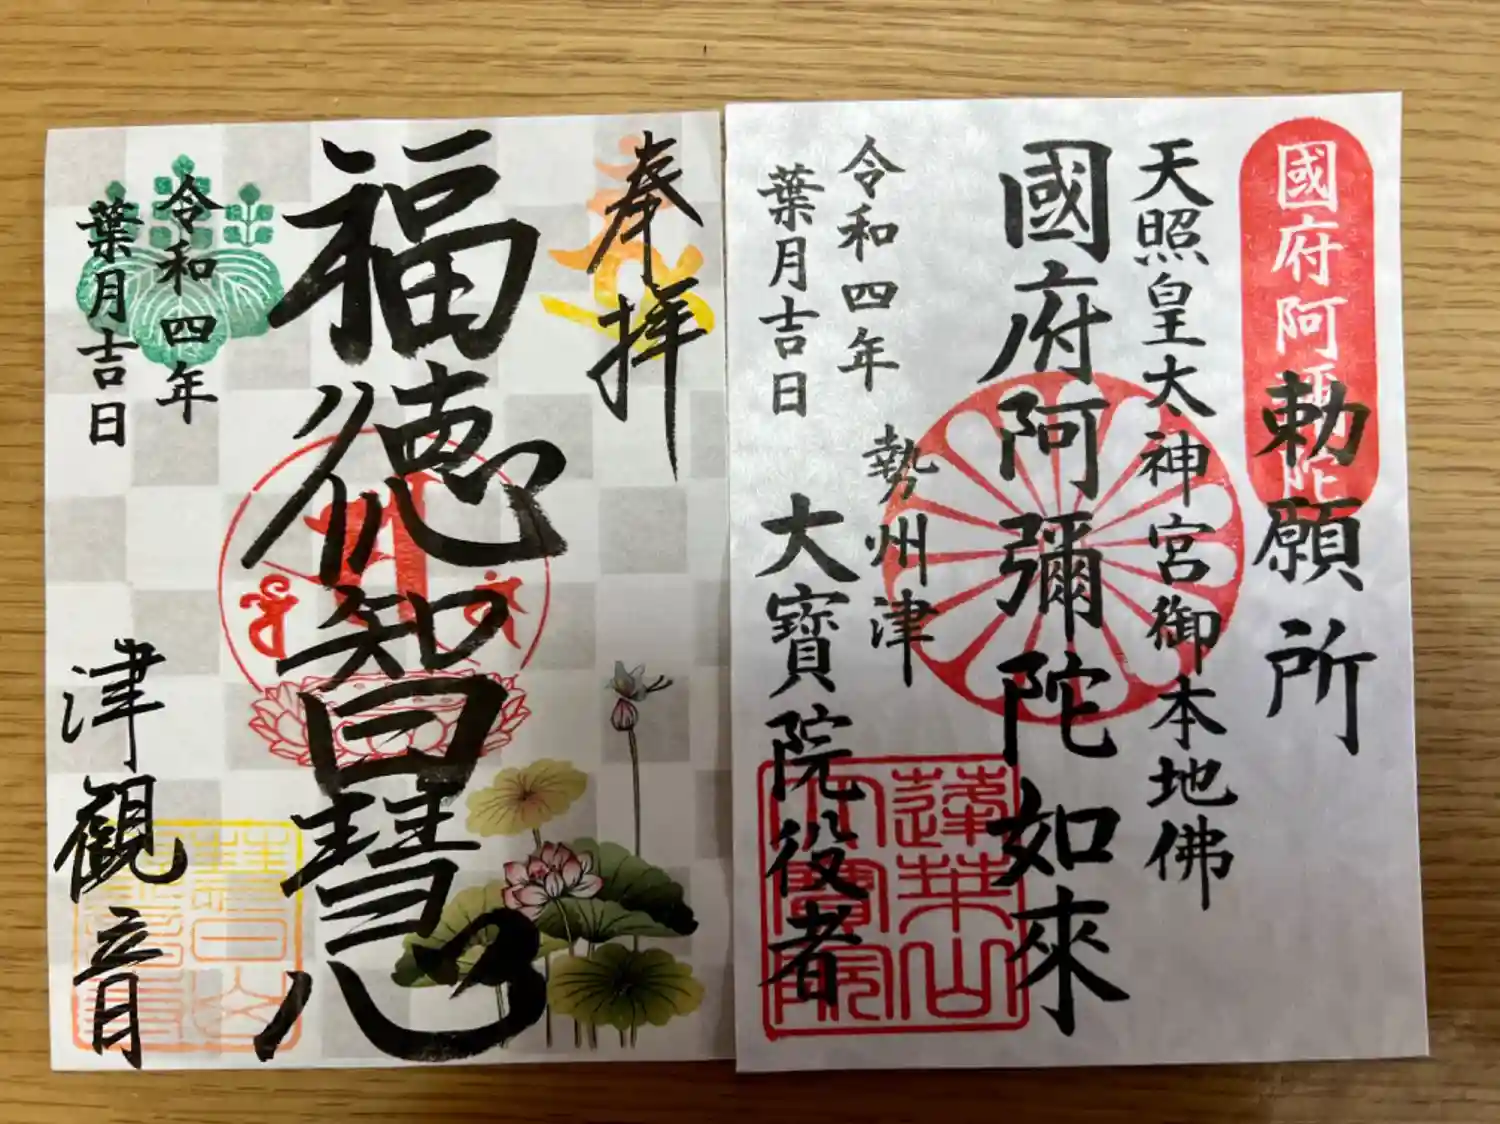 奉拝
福徳智慧
令和四年
葉月吉日
津観音
國府阿彌陀
勅願所
天照皇大神宮御本地佛
國府阿彌陀如來
令和四年
葉月吉日
勢州津
大寶院役者
蓮華山
大寶院